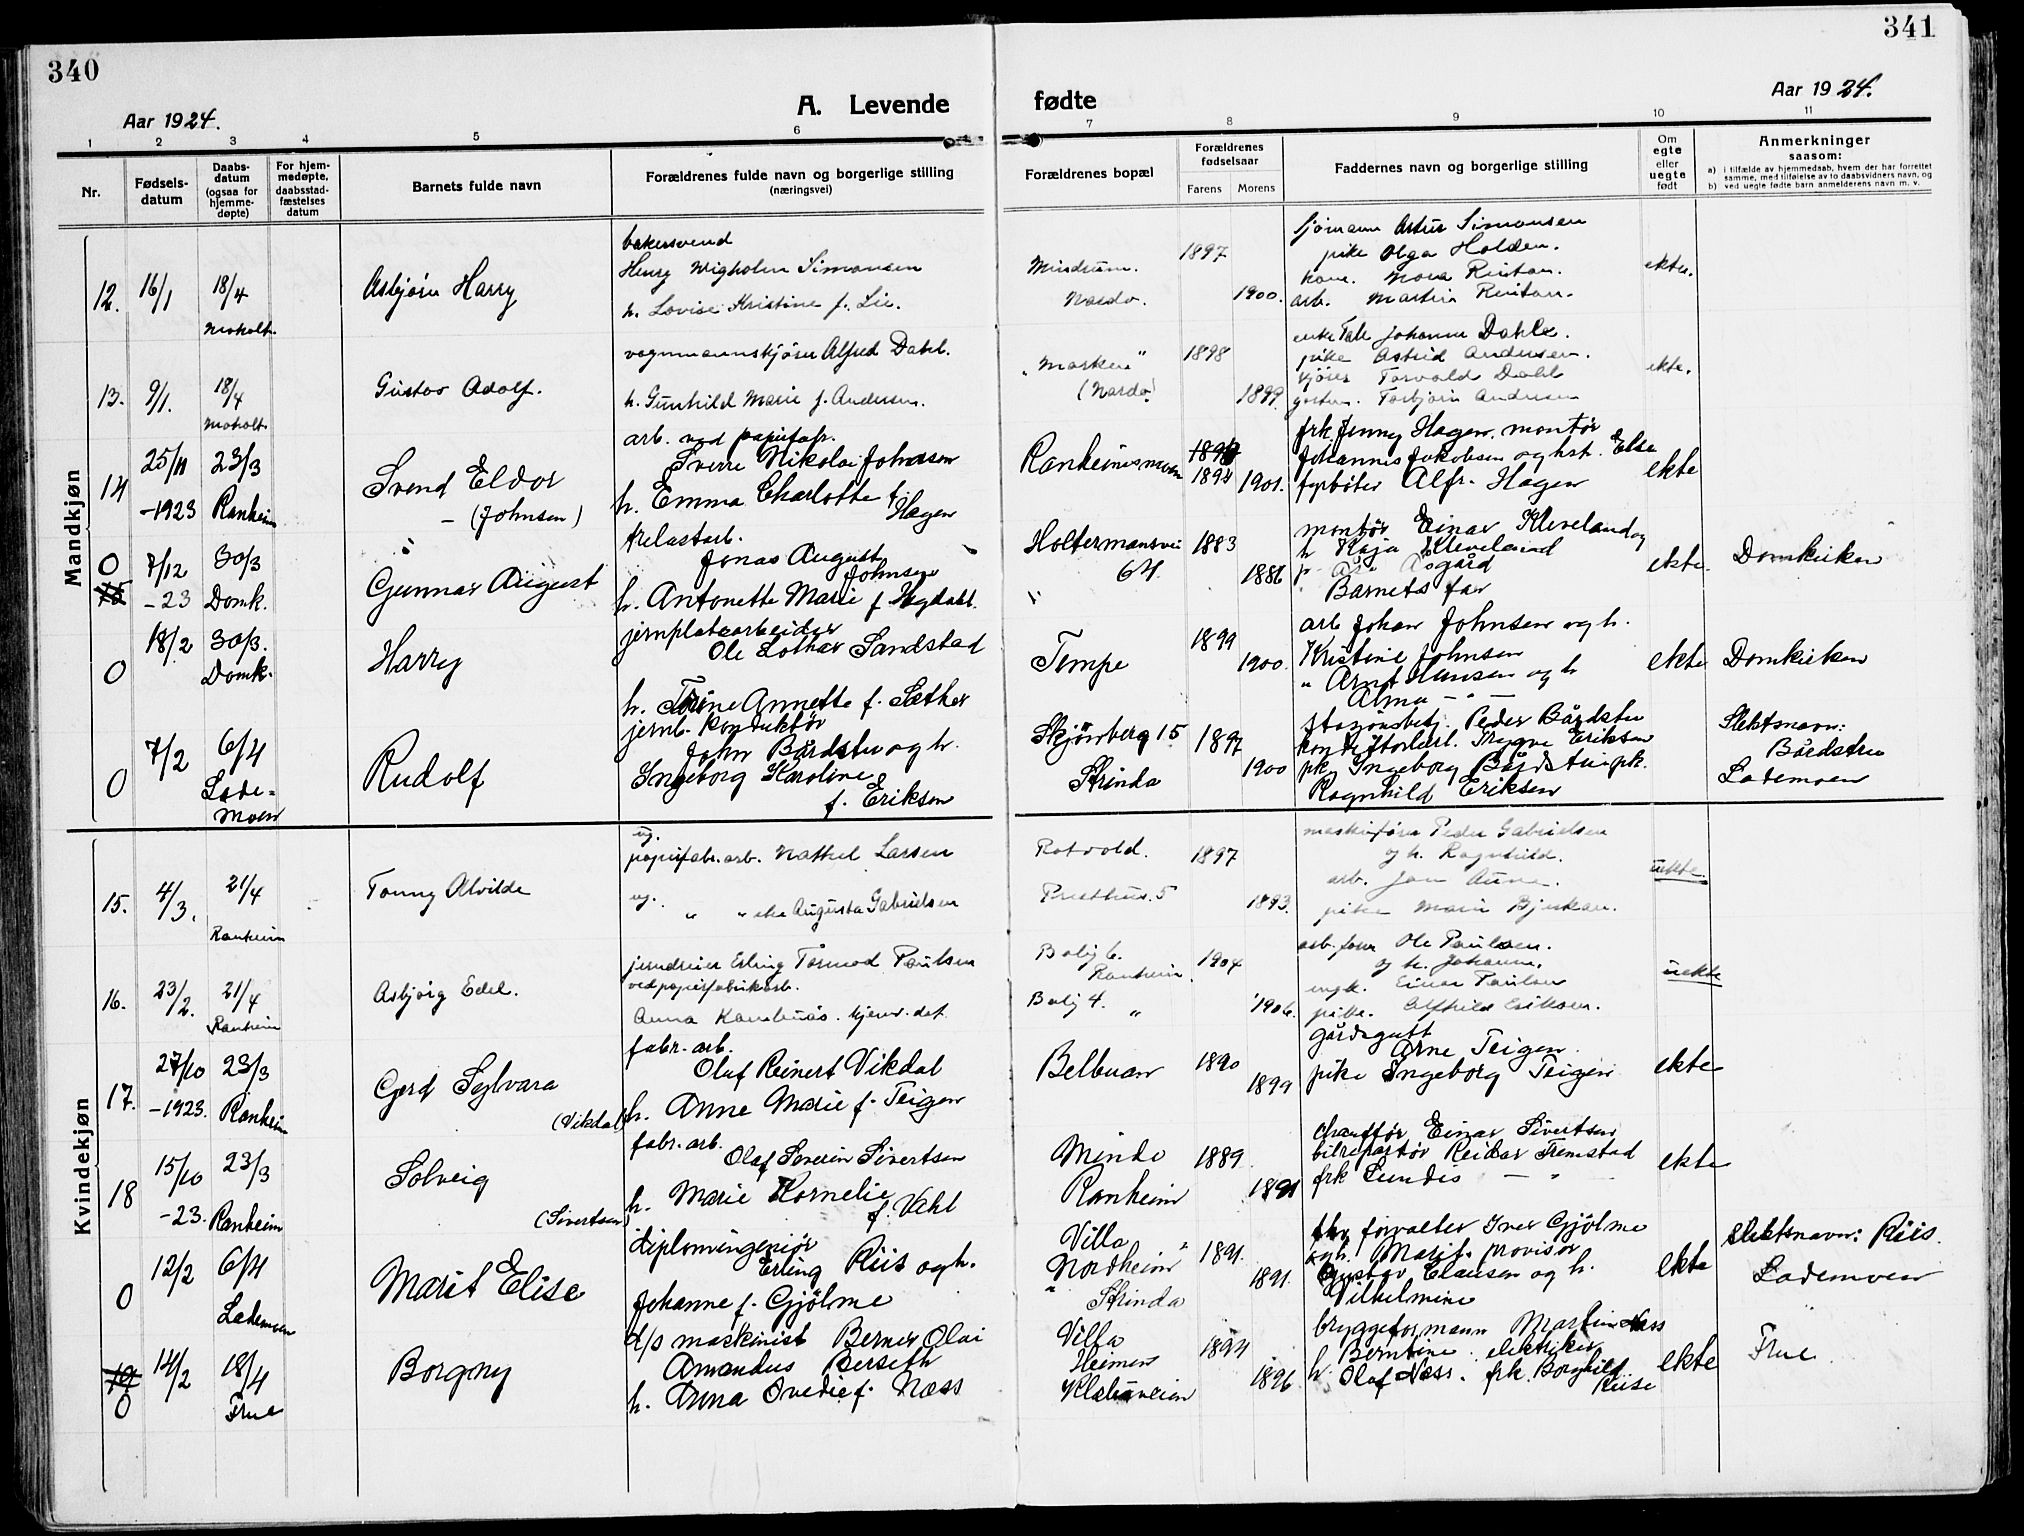 340
341
Aar 1924.
A. Levende
fødte
Aar 1924.
1 2 3 4 5 6 7 8 9 10 11
Nr.
Fødsels-
datum
Daabs-
datum
(ogsaa for
hjemme-
døpte)
For hjem-
medøpte,
daabsstad-
fæstelses
datum
Barnets fulde navn
Forældrenes fulde navn og borgerlige stilling
(næringsvei)
Forældrenes bopæl
Forældrenes
fødselsaar
Farens Morens
Faddernes navn og borgerlige stilling
Om
egte
eller
uegte
født
Anmerkninger
saasom:
a) i tilfælde av hjemmedaab, hvem der har forrettet
samme, med tilføielse av to daabsvidners navn, og
b) ved uegte fødte barn anmelderens navn m. v.
Mandkjøn
12. 16/1 18/4
Moholt
Asbjørn Harry
bakersvend
Henry Wigholm Simonsen
h. Lovise Kristine f. Lie.
Nardo.
1897
1900.
sjømann Artur Simonsen
pike Olga Holden.
kone Nora
arb. Martin
ekte.
13. 9/1. 18/4
Moholt
Gustav Adolf.
vognmannskjører Alfred Dahl.
h. Gunhild Marie f. Andersen.
"Marken"
(Nardo)
1898
1899.
enkefru Johanne Dahle.
pike Astrid Andersen.
kjører Torvald Dahl
Torbjørn Andersen
ekte.
14 25/11 23/3
-1923 Ranheim
Svend Eldor
- (Johnsen)
arb. ved papirfabr.
Sverre Nikolai Johnsen
h. Emma Charlotte f.
Hagen
Ranheimsmoen
1894
1901.
frk Jenny Hagen, montør
Johannes Jakobsen og hst. Else
fyrbøter Alfr. Hagen
ekte
0 7/12 30/3
15 -23 Domk.
Gunnar August
trelastarb.
Jonas August
Johnsen
h. Antonette Marie f.
Holtermansvei
64.
"
1883
1886
montør Einar Kleveland og
h Kaja Kleveland
Åsgård
Barnets far
ekte.
Domkirken
0 18/2 30/3.
Domk.
Harry
jernplatearbeider
Ole Lothar Sandstad
h. Trine Annette f. Sæther
Tempe
1899
1900.
arb Johan Johnsen og h.
Kristine Johnsen
" Arnt Hansen og h
Alma - " -
ekte
Domkirken
0 7/2 6/4
Lade-
moen
Rudolf
jernb. konduktør
John Bårdstu og h.
Ingeborg Karoline
f. Eriksen
Skjønberg 15
Strinda
1897
1900
stasjonsbetj. Peder Bårdstu
Trygve Eriksen
pk. Ingeborg Bårdstu pk.
Ragnhild Eriksen
Slektsnavn:
Bårdstu
Lademoen
Kvindekjøn
15. 4/3. 21/4
Ranheim
Tonny Alvilde
ug.
papirfabr. arb. Nathal Larsen
ug. " " ske Augusta Gabrielsen
Rotvold.
Presthus. 5
1897
1893.
maskinfører Peder Gabrielsen
og h. Ragnhild.
arb. Jon Aune.
pike Marie
uekte.
16. 23/2. 21/4
Ranheim
Asbjørg Edel.
jerndreier Erling Tormod Paulsen
ved papirfabrikarb.
Anna hjemv. dat
Bolig 6.
Ranheim
Bolig 4. "
1904
1906.
arb. form Ole Paulsen.
og h. Johanne.
ungk. Einar Paulsen
pike. Alfhild Eriksen.
uekte
17. 27/10 23/3
-1923. Ranheim
Gerd Sylvara
(Vikdal)
fabr. arb.
Olaf Reinert Vikdal
h. Anne Marie f. Teigen
Belbuan
1890
1899
gårdsgutt
Arne Teigen.
pike Ingeborg Teigen
ekte
18 15/10 23/3
-23. Ranheim
Solveig
(Sivertsen)
fabr. arb.
Olaf Severin Sivertsen
h. Marie Kornelie
f. Vehl
Minde
Ranheim
1889
1891
chauffør Einar Sivertsen
bilreparatør Reidar Fremstad
frk Lundis - " -
ekte
0 12/2 6/4
Lademoen
Marit Elise
diplomingeniør
Erling Riis og h.
Johanne f. Gjølme
Villa
Nordheim"
" Strinda
1891.
1891.
forvalter Iver Gjølme
og h. Marit. provisor
Gustav Clausen og h.
Vilhelmine
ekte
Slektsnavn: Riis.
Lademoen
19 14/2 18/4
0 Frue
Borgny
d/s maskinist Berner Olai
Amandus Berseth
h. Anna Ovedie f. Næss
Villa
Heimen
Klæbuveien
1894
1896
bryggeformann Martin Næss
h Berntine. elektriker
Olaf Næss. frk. Borghild
Riise
ekte
Frue.